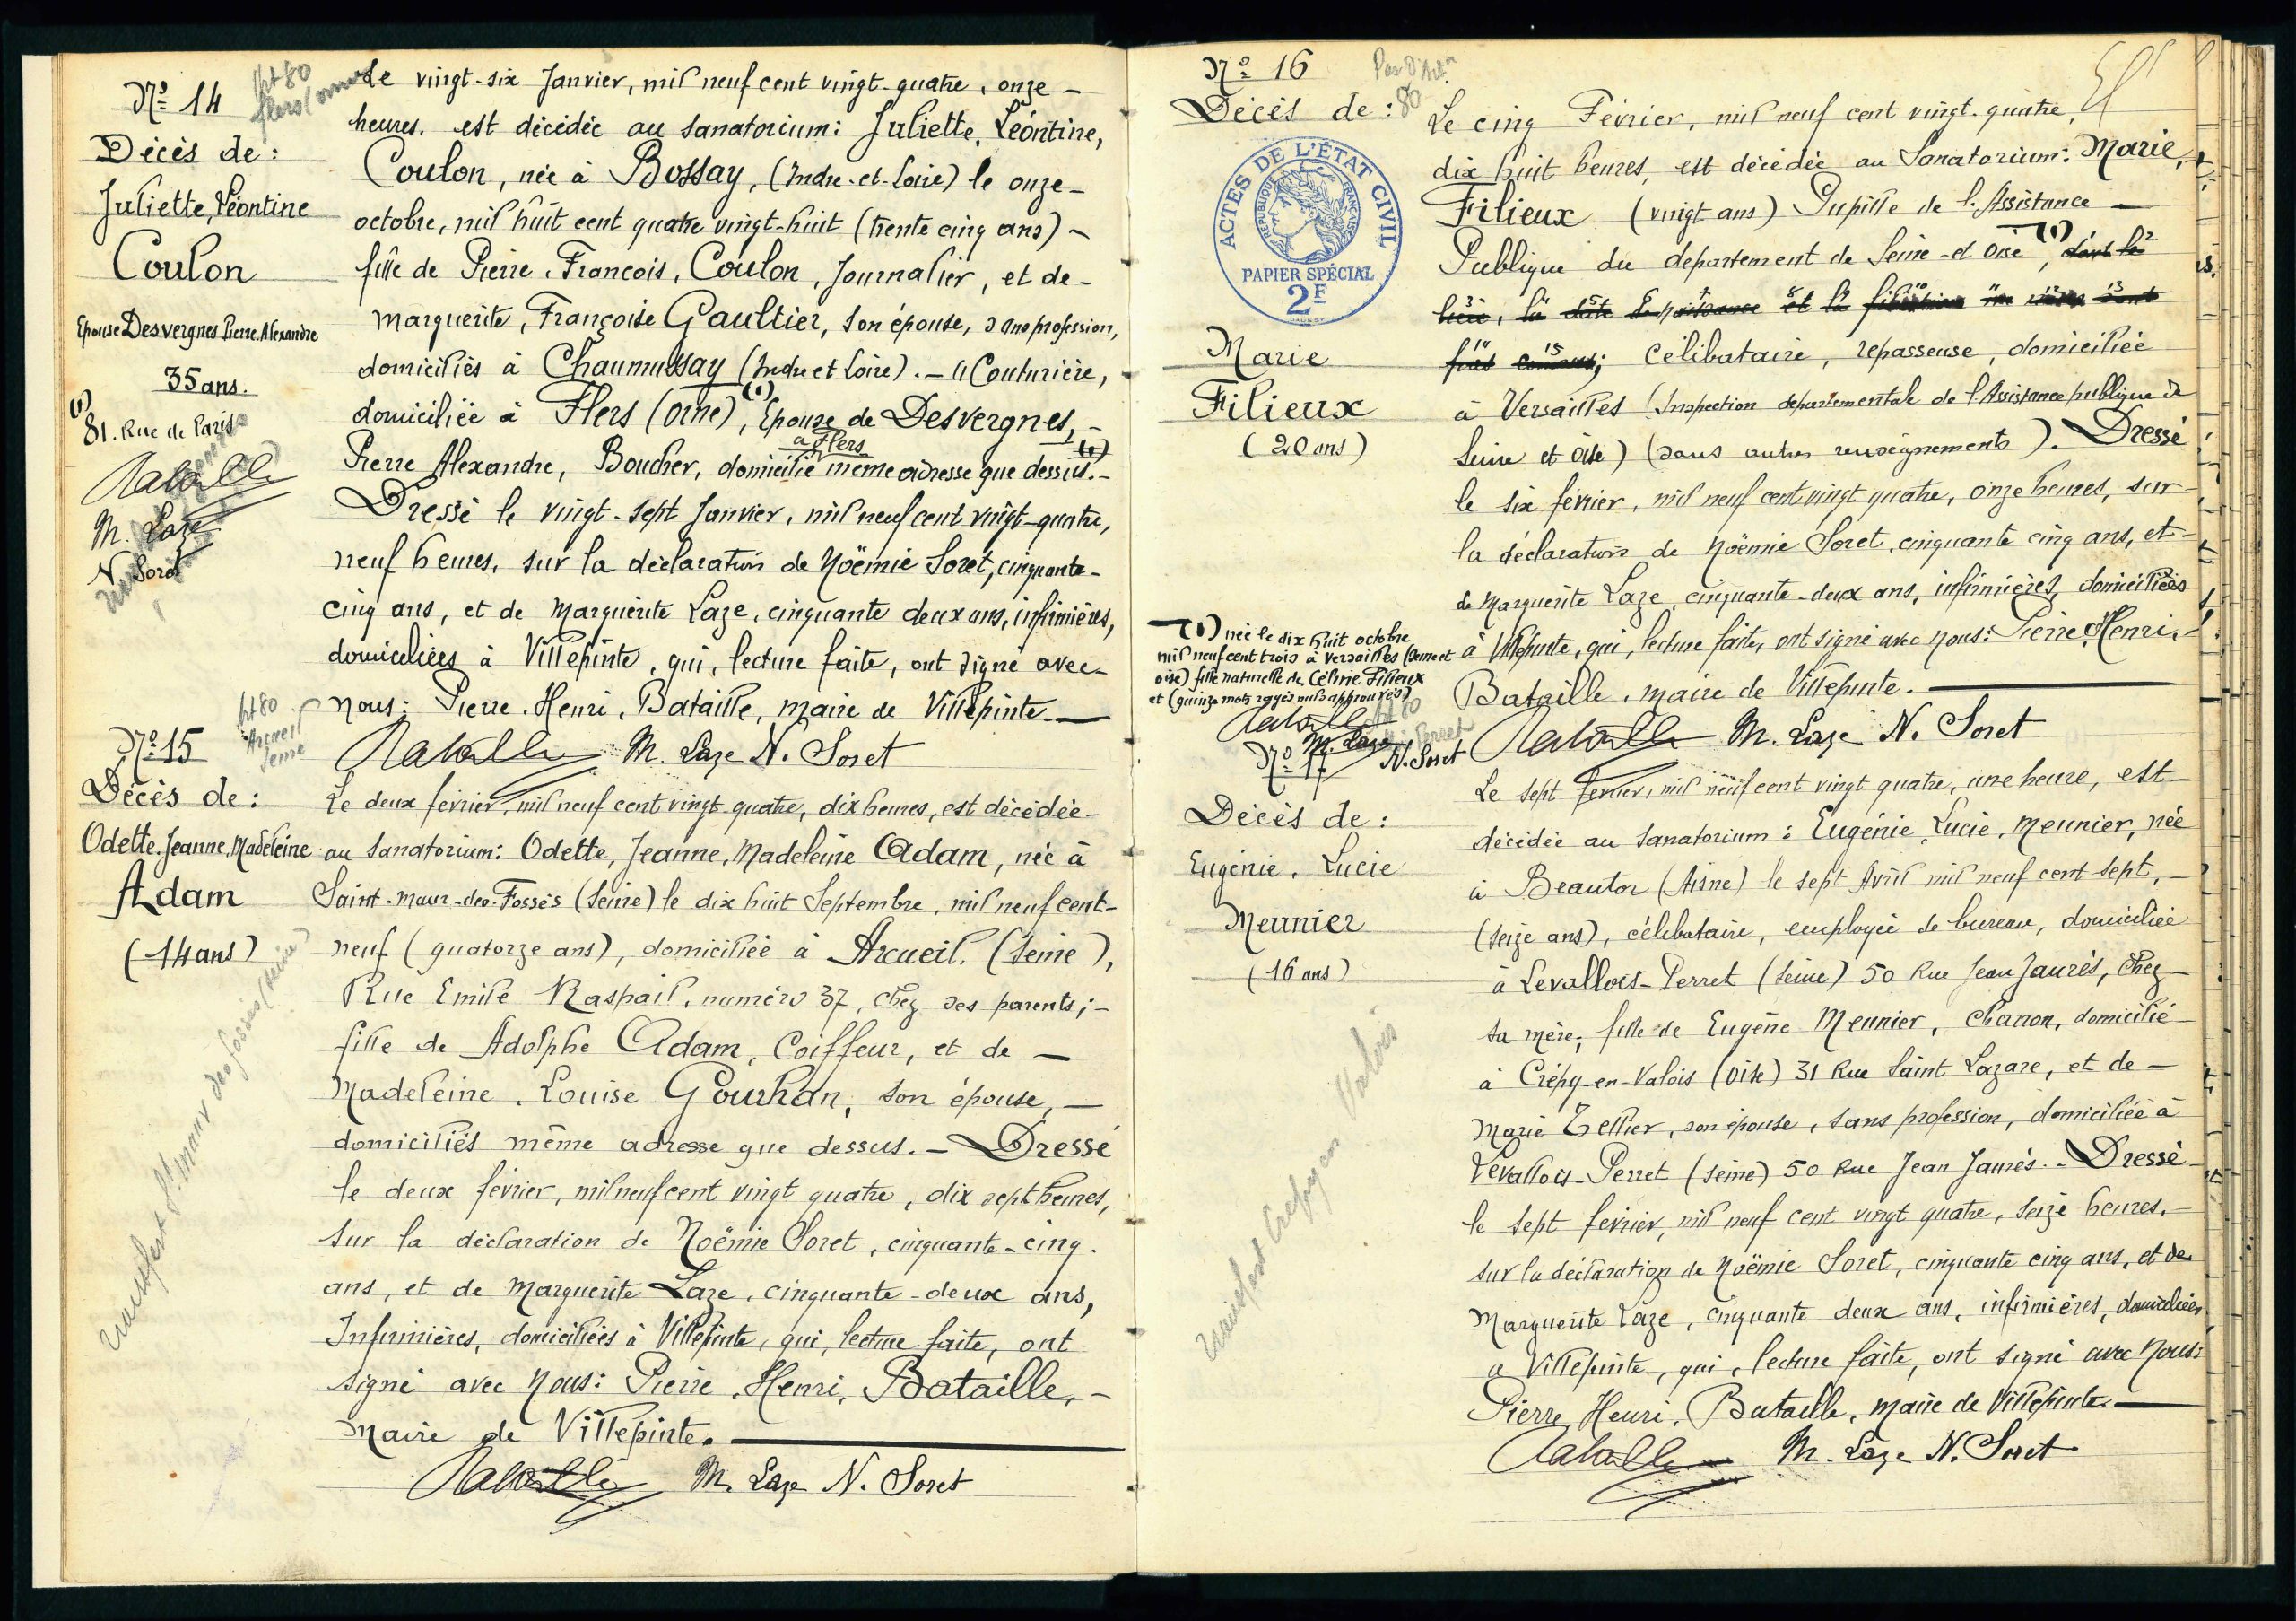 Nº 14
Décès de :
Juliette, Léontine
Coulon
Epouse Desvergnes Pierre Alexandre
35 ans.
(1)
81. Rue de Paris
Bataille
M. Laze
N. Soret
Art 80
Flers (orne)
Le vingt-six Janvier, mil neuf cent vingt-quatre, onze –
heures. est décédée au sanatorium : Juliette, Léontine,
Coulon, née à Bossay, (Indre-et-Loire) le onze –
octobre, mil huit cent quatre vingt-huit (trente cinq ans) –
fille de Pierre, François, Coulon, Journalier, et de –
Marguerite, Françoise Gaultier, son épouse, sans profession,
domiciliés à Chaumussay (Indre et Loire). – Couturière,
domiciliée à Flers (orne) (1), Epouse de Desvergnes, –
à Flers
Pierre Alexandre, Boucher, domicilié même adresse que dessus. –
Dressé le vingt-sept Janvier, mil neuf cent vingt-quatre,
neuf heures, sur la déclaration de Noëmie Soret, cinquante –
cinq ans, et de Marguerite Laze, cinquante deux ans, infirmières,
domiciliées à Villepinte, qui, lecture faite, ont signé avec –
nous : Pierre, Henri, Bataille, maire de Villepinte. —
Bataille M. Laze N. Soret
Nº 15
Art 80
Arcueil
Seine
Décès de :
Odette, Jeanne, Madeleine
Adam
(14 ans)
St maur des fossés (seine)
Le deux février, mil neuf cent vingt-quatre, dix heures, est décédée –
au Sanatorium : Odette, Jeanne, Madeleine Adam, née à
Saint-Maur-des-Fossés (Seine) le dix huit Septembre, mil neuf cent –
neuf (quatorze ans), domiciliée à Arcueil, (Seine),
Rue Emile Raspail, numéro 37, chez ses parents ; –
fille de Adolphe Adam, Coiffeur, et de —
Madeleine, Louise Gourhan, son épouse, —
domiciliés même adresse que dessus. – Dressé
le deux février, mil neuf cent vingt quatre, dix sept heures,
sur la déclaration de Noëmie Soret, cinquante-cinq –
ans, et de Marguerite Laze, cinquante-deux ans,
Infirmières, domiciliées à Villepinte, qui, lecture faite, ont
signé avec Nous : Pierre, Henri, Bataille, –
Maire de Villepinte. —
Bataille M. Laze N. Soret
Nº 16
Décès de :
80
ACTES DE L'ÉTAT CIVIL
RÉPUBLIQUE FRANÇAISE
PAPIER SPÉCIAL
2F
Marie
Filieux
(20 ans)
Le cinq Février, mil neuf cent vingt-quatre,
dix huit heures, est décédée au Sanatorium : Marie,
Filieux (vingt ans) Pupille de l'Assistance —
Publique du département de Seine-et Oise (1), dont le
lieu, la date de naissance et la filiation
connus ; célibataire, repasseuse, domiciliée
à Versailles (Inspection départementale de l'Assistance publique de
Seine et Oise) (sans autres renseignements). Dressé
le six février, mil neuf cent vingt quatre, onze heures, sur –
la déclaration de Noëmie Soret, cinquante cinq ans, et –
de Marguerite Laze, cinquante-deux ans, infirmières, domiciliées
à Villepinte, qui, lecture faite, ont signé avec Nous : Pierre, Henri, –
Bataille, maire de Villepinte. —
(1) née le dix huit octobre
mil neuf cent trois à Versailles (Seine et
oise) fille naturelle de Céline Filieux
et (quinze mots rayés nuls approuvés)
Bataille
M. Laze
N. Soret
Bataille M. Laze N. Soret
Nº 17
Art 80
Perret
Décès de :
Eugénie, Lucie
Meunier
(16 ans)
Crépy en Valois
Le sept février, mil neuf cent vingt quatre, une heure, est –
décédée au sanatorium : Eugénie, Lucie, Meunier, née
à Beautor (Aisne) le sept Avril mil neuf cent sept, –
(seize ans), célibataire, employée de bureau, domiciliée
à Levallois-Perret (Seine) 50 Rue Jean Jaurès, chez –
sa mère ; fille de Eugène Meunier, charron, domicilié –
à Crépy-en-Valois (Oise) 31 Rue Saint Lazare, et de –
Marie Tellier, son épouse, sans profession, domiciliée à
Levallois-Perret (Seine) 50 Rue Jean Jaurès. – Dressé –
le sept février, mil neuf cent vingt quatre, seize heures, –
sur la déclaration de Noëmie Soret, cinquante cinq ans, et de
Marguerite Laze, cinquante deux ans, infirmières, domiciliées
à Villepinte, qui, lecture faite, ont signé avec Nous :
Pierre, Henri, Bataille, maire de Villepinte. —
Bataille M. Laze N. Soret